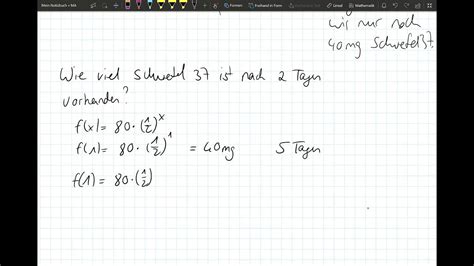 Mein Notizbuch » MA
Freihand in Form
Mathematik
wir nur noch
40mg Schwefel 37.
Wie viel Schwefel 37 ist nach 2 Tagen
vorhanden?
f(x) = 80 · (1/2)^x
f(1) = 80 · (1/2)^1 = 40mg 5 Tagen
f(1) = 80 · (1/2)